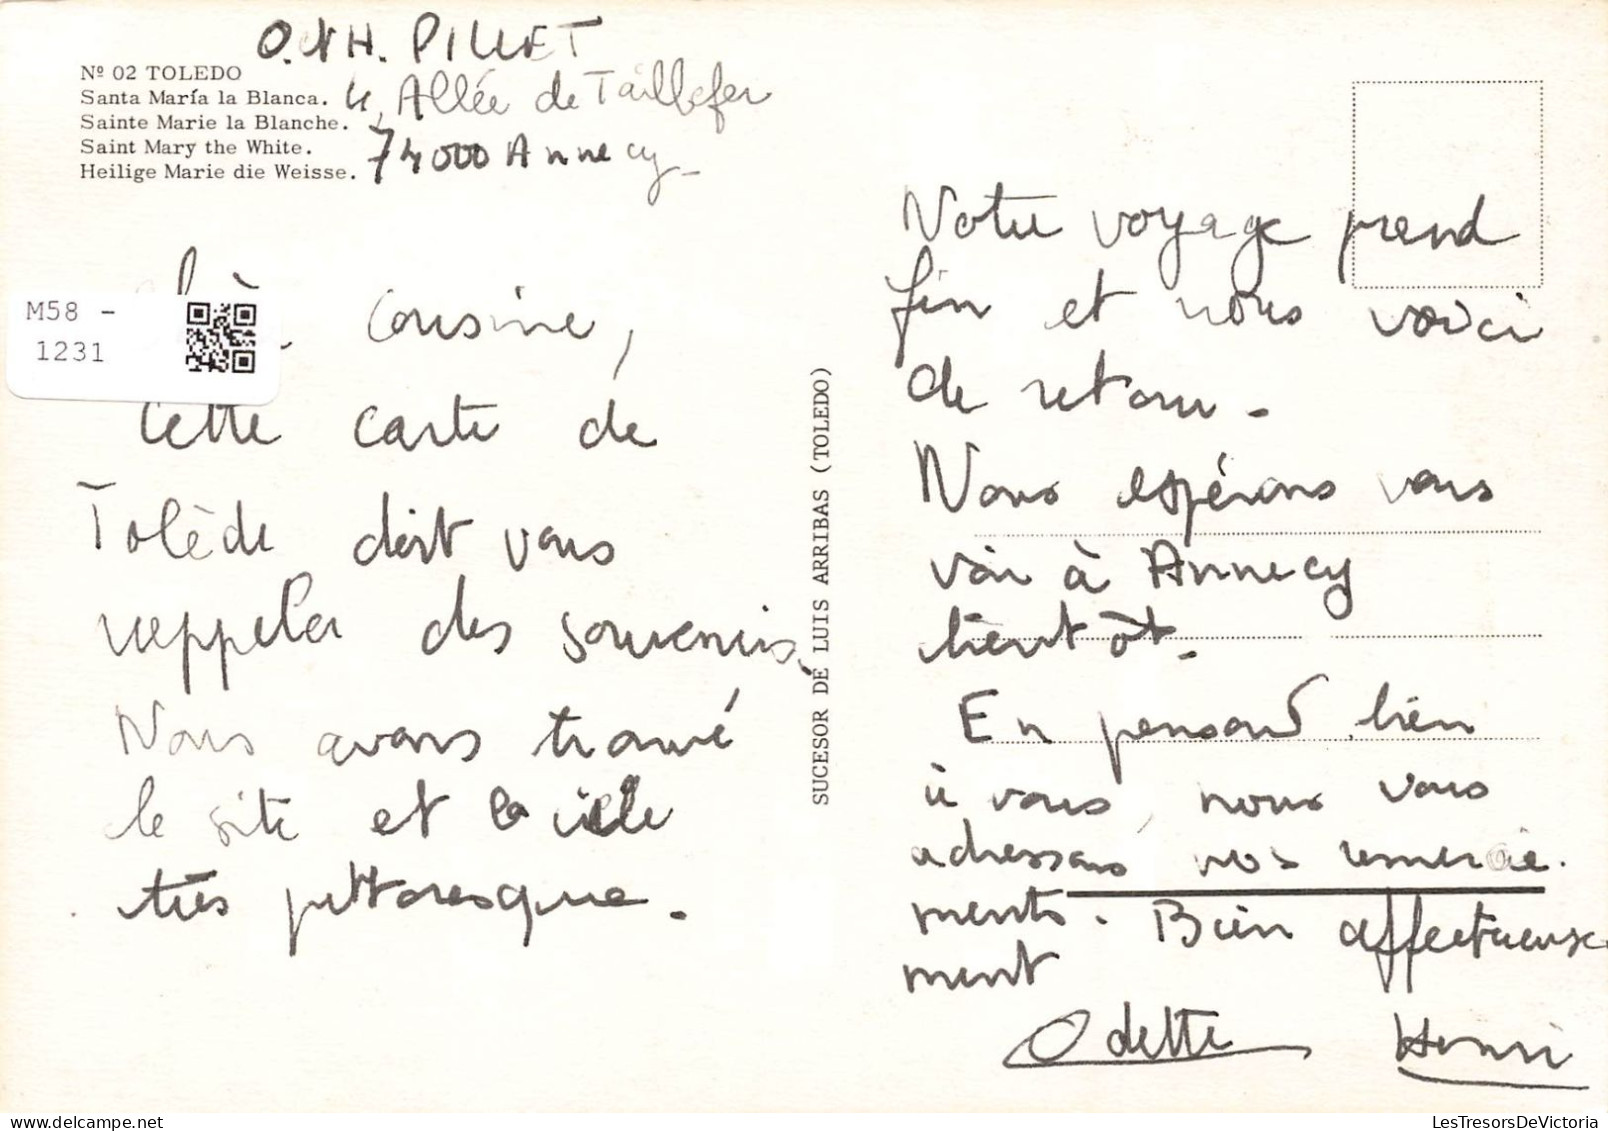 O. et H. PILLET
Nº 02 TOLEDO
Santa María la Blanca.
Sainte Marie la Blanche.
Saint Mary the White.
Heilige Marie die Weisse.
4, Allée de Taillefer
74000 Annecy -
M58 -
1231
cousine,
Cette carte de
Tolède doit vous
rappeler des souvenirs.
Nous avons trouvé
le site et la ville
très pittoresque.
SUCESOR DE LUIS ARRIBAS (TOLEDO)
Notre voyage prend
fin et nous voici
de retour -
Nous espérons vous
voir à Annecy
bientôt.
En pensant bien
à vous, nous vous
adressons nos remercie-
ments. Bien affectueuse-
ment
Odette Henri
LesTresorsDeVictoria